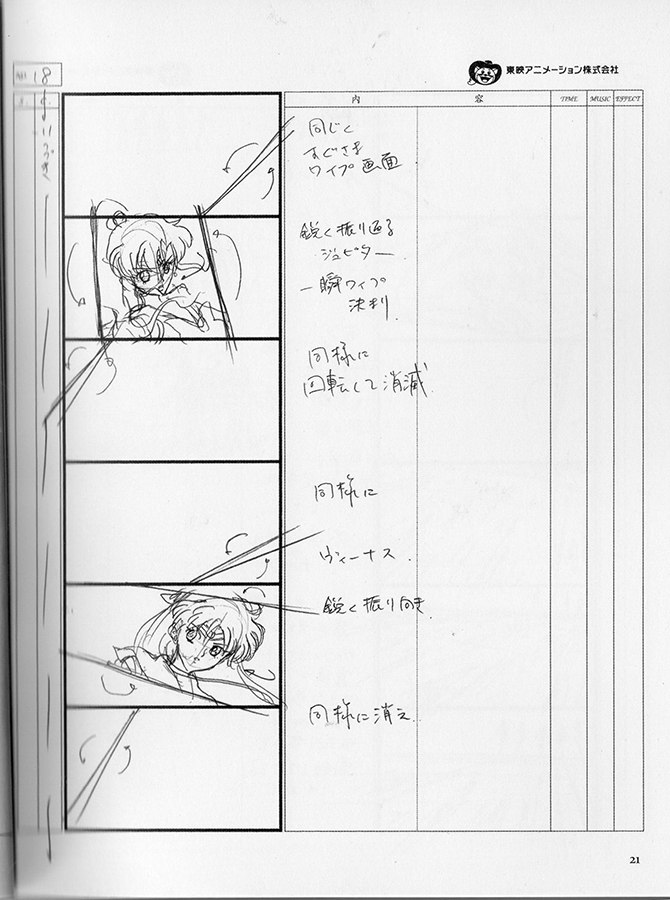 東映アニメーション株式会社
18
内 容 TIME MUSIC EFFECT
同じく
ワイプ画面
鋭く振り返る
ジュピター
一瞬ワイプ
同様に
回転して消滅
同様に
ヴィーナス.
鋭く振り向き
同様に消え.
21